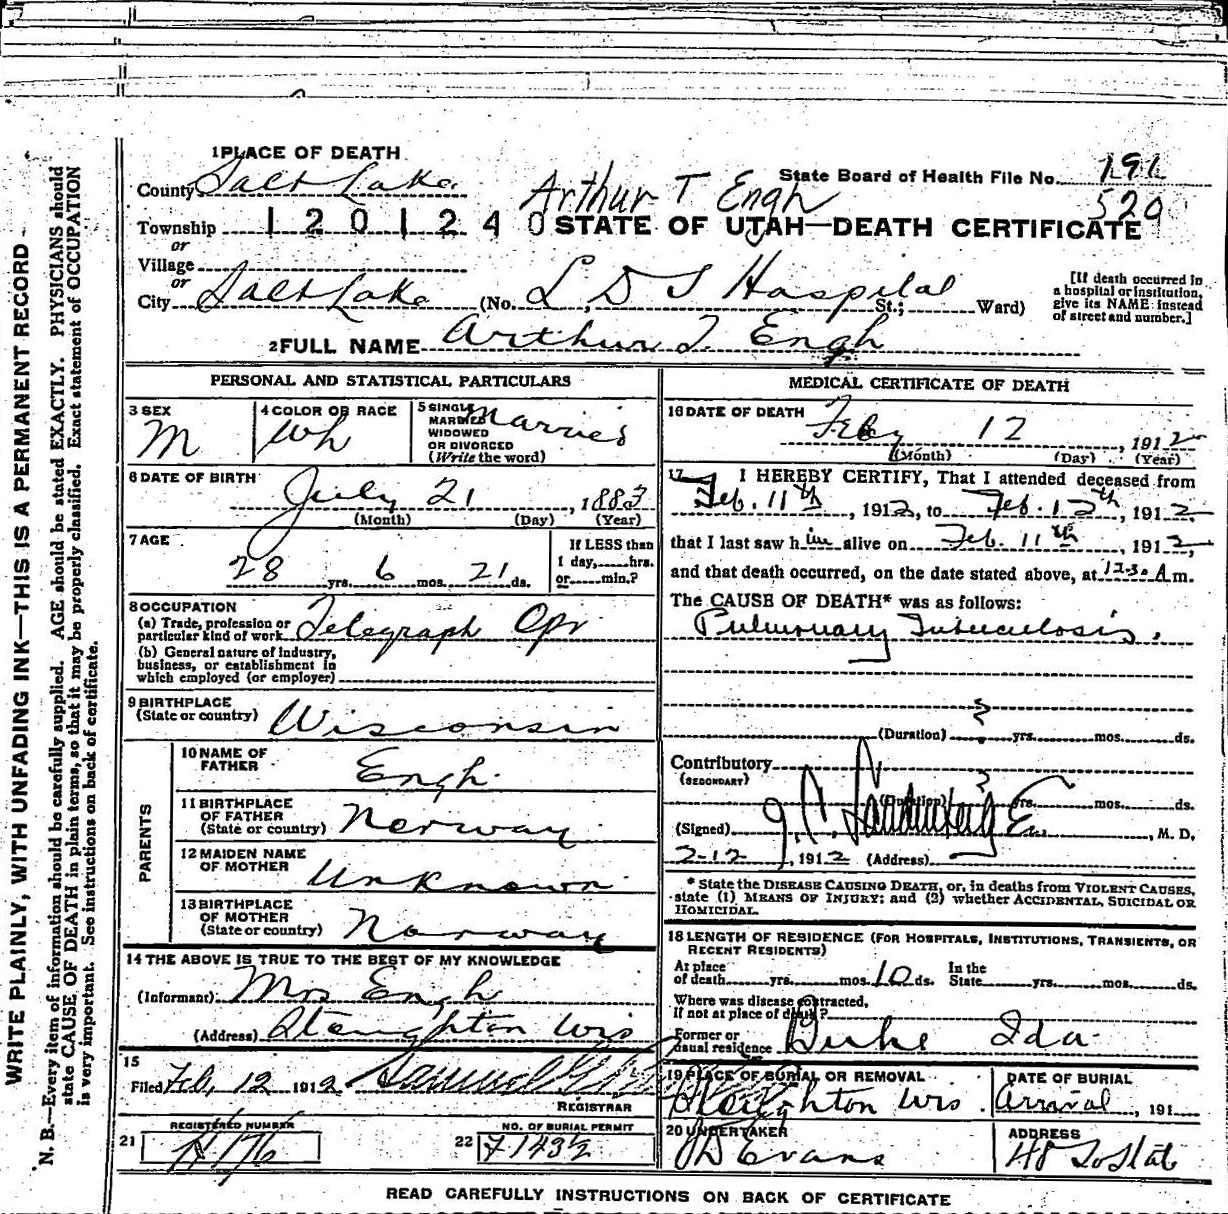 1 PLACE OF DEATH
County Salt Lake
Arthur T Engh
State Board of Health File No. 191
529
Township 1201240 STATE OF UTAH—DEATH CERTIFICATE
or
Village
or
City Salt Lake (No. L D S Hospital St.; Ward)
[If death occurred in
a hospital or institution,
give its NAME instead
of street and number.]
2 FULL NAME Arthur T. Engh
PERSONAL AND STATISTICAL PARTICULARS
3 SEX
M
4 COLOR OR RACE
Wh
5 SINGLE
MARRIED
WIDOWED
OR DIVORCED
(Write the word)
Married
6 DATE OF BIRTH
July 21, 1883
(Month) (Day) (Year)
7 AGE
28 yrs. 6 mos. 21 ds.
If LESS than
1 day, hrs.
or min.?
8 OCCUPATION
(a) Trade, profession or
particular kind of work Telegraph Opr
(b) General nature of industry,
business, or establishment in
which employed (or employer)
9 BIRTHPLACE
(State or country) Wisconsin
PARENTS
10 NAME OF
FATHER Engh
11 BIRTHPLACE
OF FATHER
(State or country) Norway
12 MAIDEN NAME
OF MOTHER Unknown
13 BIRTHPLACE
OF MOTHER
(State or country) Norway
14 THE ABOVE IS TRUE TO THE BEST OF MY KNOWLEDGE
(Informant) Mrs Engh
(Address) Stoughton Wis
15
Filed Feb, 12 1912 Samuel
REGISTRAR
REGISTERED NUMBER
21 H176
NO. OF BURIAL PERMIT
22
MEDICAL CERTIFICATE OF DEATH
16 DATE OF DEATH
Feby 12, 1912
(Month) (Day) (Year)
17 I HEREBY CERTIFY, That I attended deceased from
Feb. 11th, 1912, to Feb. 12th, 1912,
that I last saw him alive on Feb. 11th, 1912,
and that death occurred, on the date stated above, at 12-30 A m.
The CAUSE OF DEATH* was as follows:
Pulmonary Tuberculosis.
(Duration) ? yrs. mos. ds.
Contributory
(SECONDARY)
(Duration) ? yrs. mos. ds.
(Signed) , M. D.
2-12, 1912 (Address)
* State the DISEASE CAUSING DEATH, or, in deaths from VIOLENT CAUSES,
state (1) MEANS OF INJURY; and (2) whether ACCIDENTAL, SUICIDAL OR
HOMICIDAL.
18 LENGTH OF RESIDENCE (FOR HOSPITALS, INSTITUTIONS, TRANSIENTS, OR
RECENT RESIDENTS)
At place
of death yrs. mos. 10 ds.
In the
State yrs. mos. ds.
Where was disease contracted,
If not at place of death?
Former or
usual residence Ida
19 PLACE OF BURIAL OR REMOVAL
Stoughton Wis.
DATE OF BURIAL
Arrival, 191
20 UNDERTAKER
Evans
ADDRESS
48 So State
READ CAREFULLY INSTRUCTIONS ON BACK OF CERTIFICATE
WRITE PLAINLY, WITH UNFADING INK—THIS IS A PERMANENT RECORD
N. B.—Every item of information should be carefully supplied. AGE should be stated EXACTLY. PHYSICIANS should
state CAUSE OF DEATH in plain terms, so that it may be properly classified. Exact statement of OCCUPATION
is very important. See instructions on back of certificate.